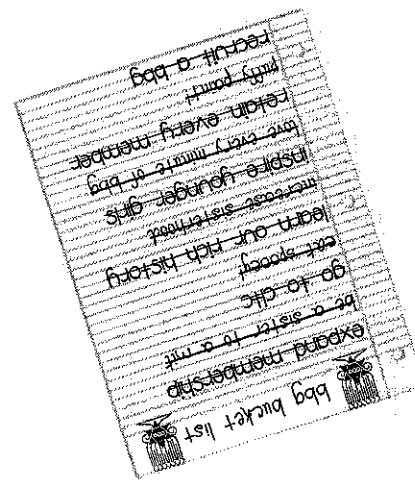 bbg bucket list
expand membership
be a sister to a mit
go to cltc
eat spooey
learn our rich history
increase sisterhood
inspire younger girls
love every minute of bbg
retain every member
puffy paint
recruit a bbg